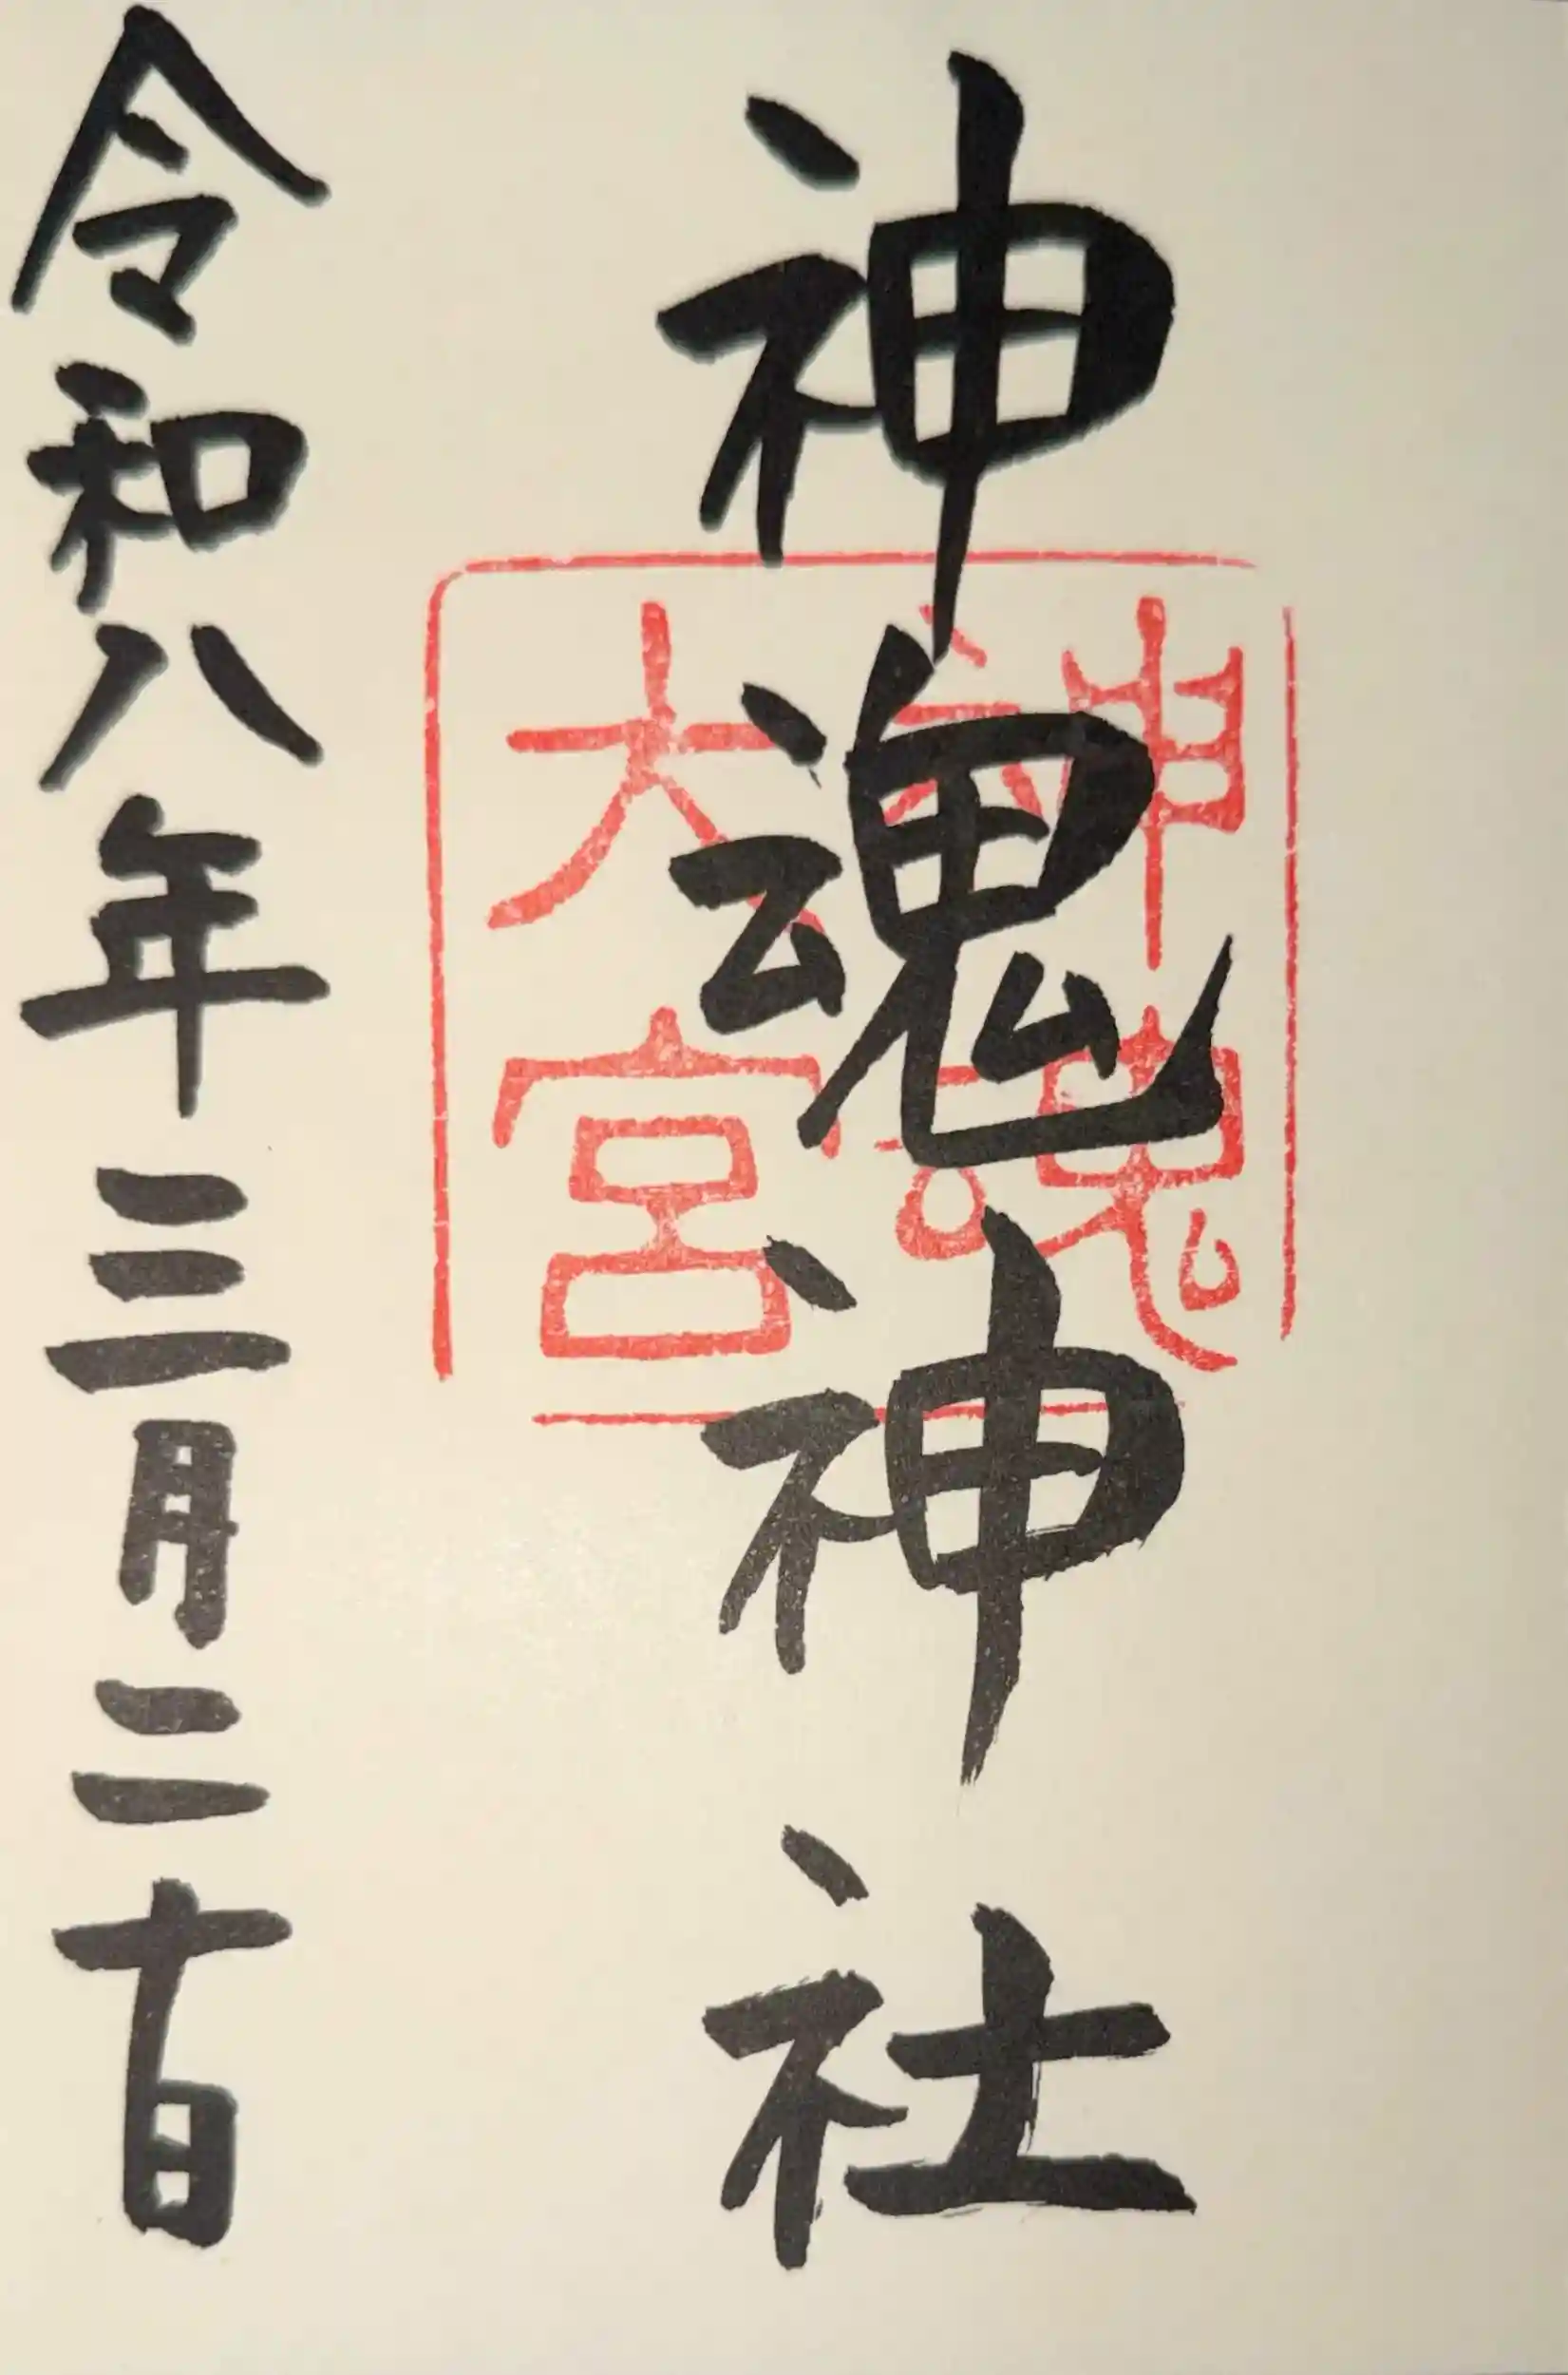 神魂神社
神魂
大宮
令和八年三月二十日